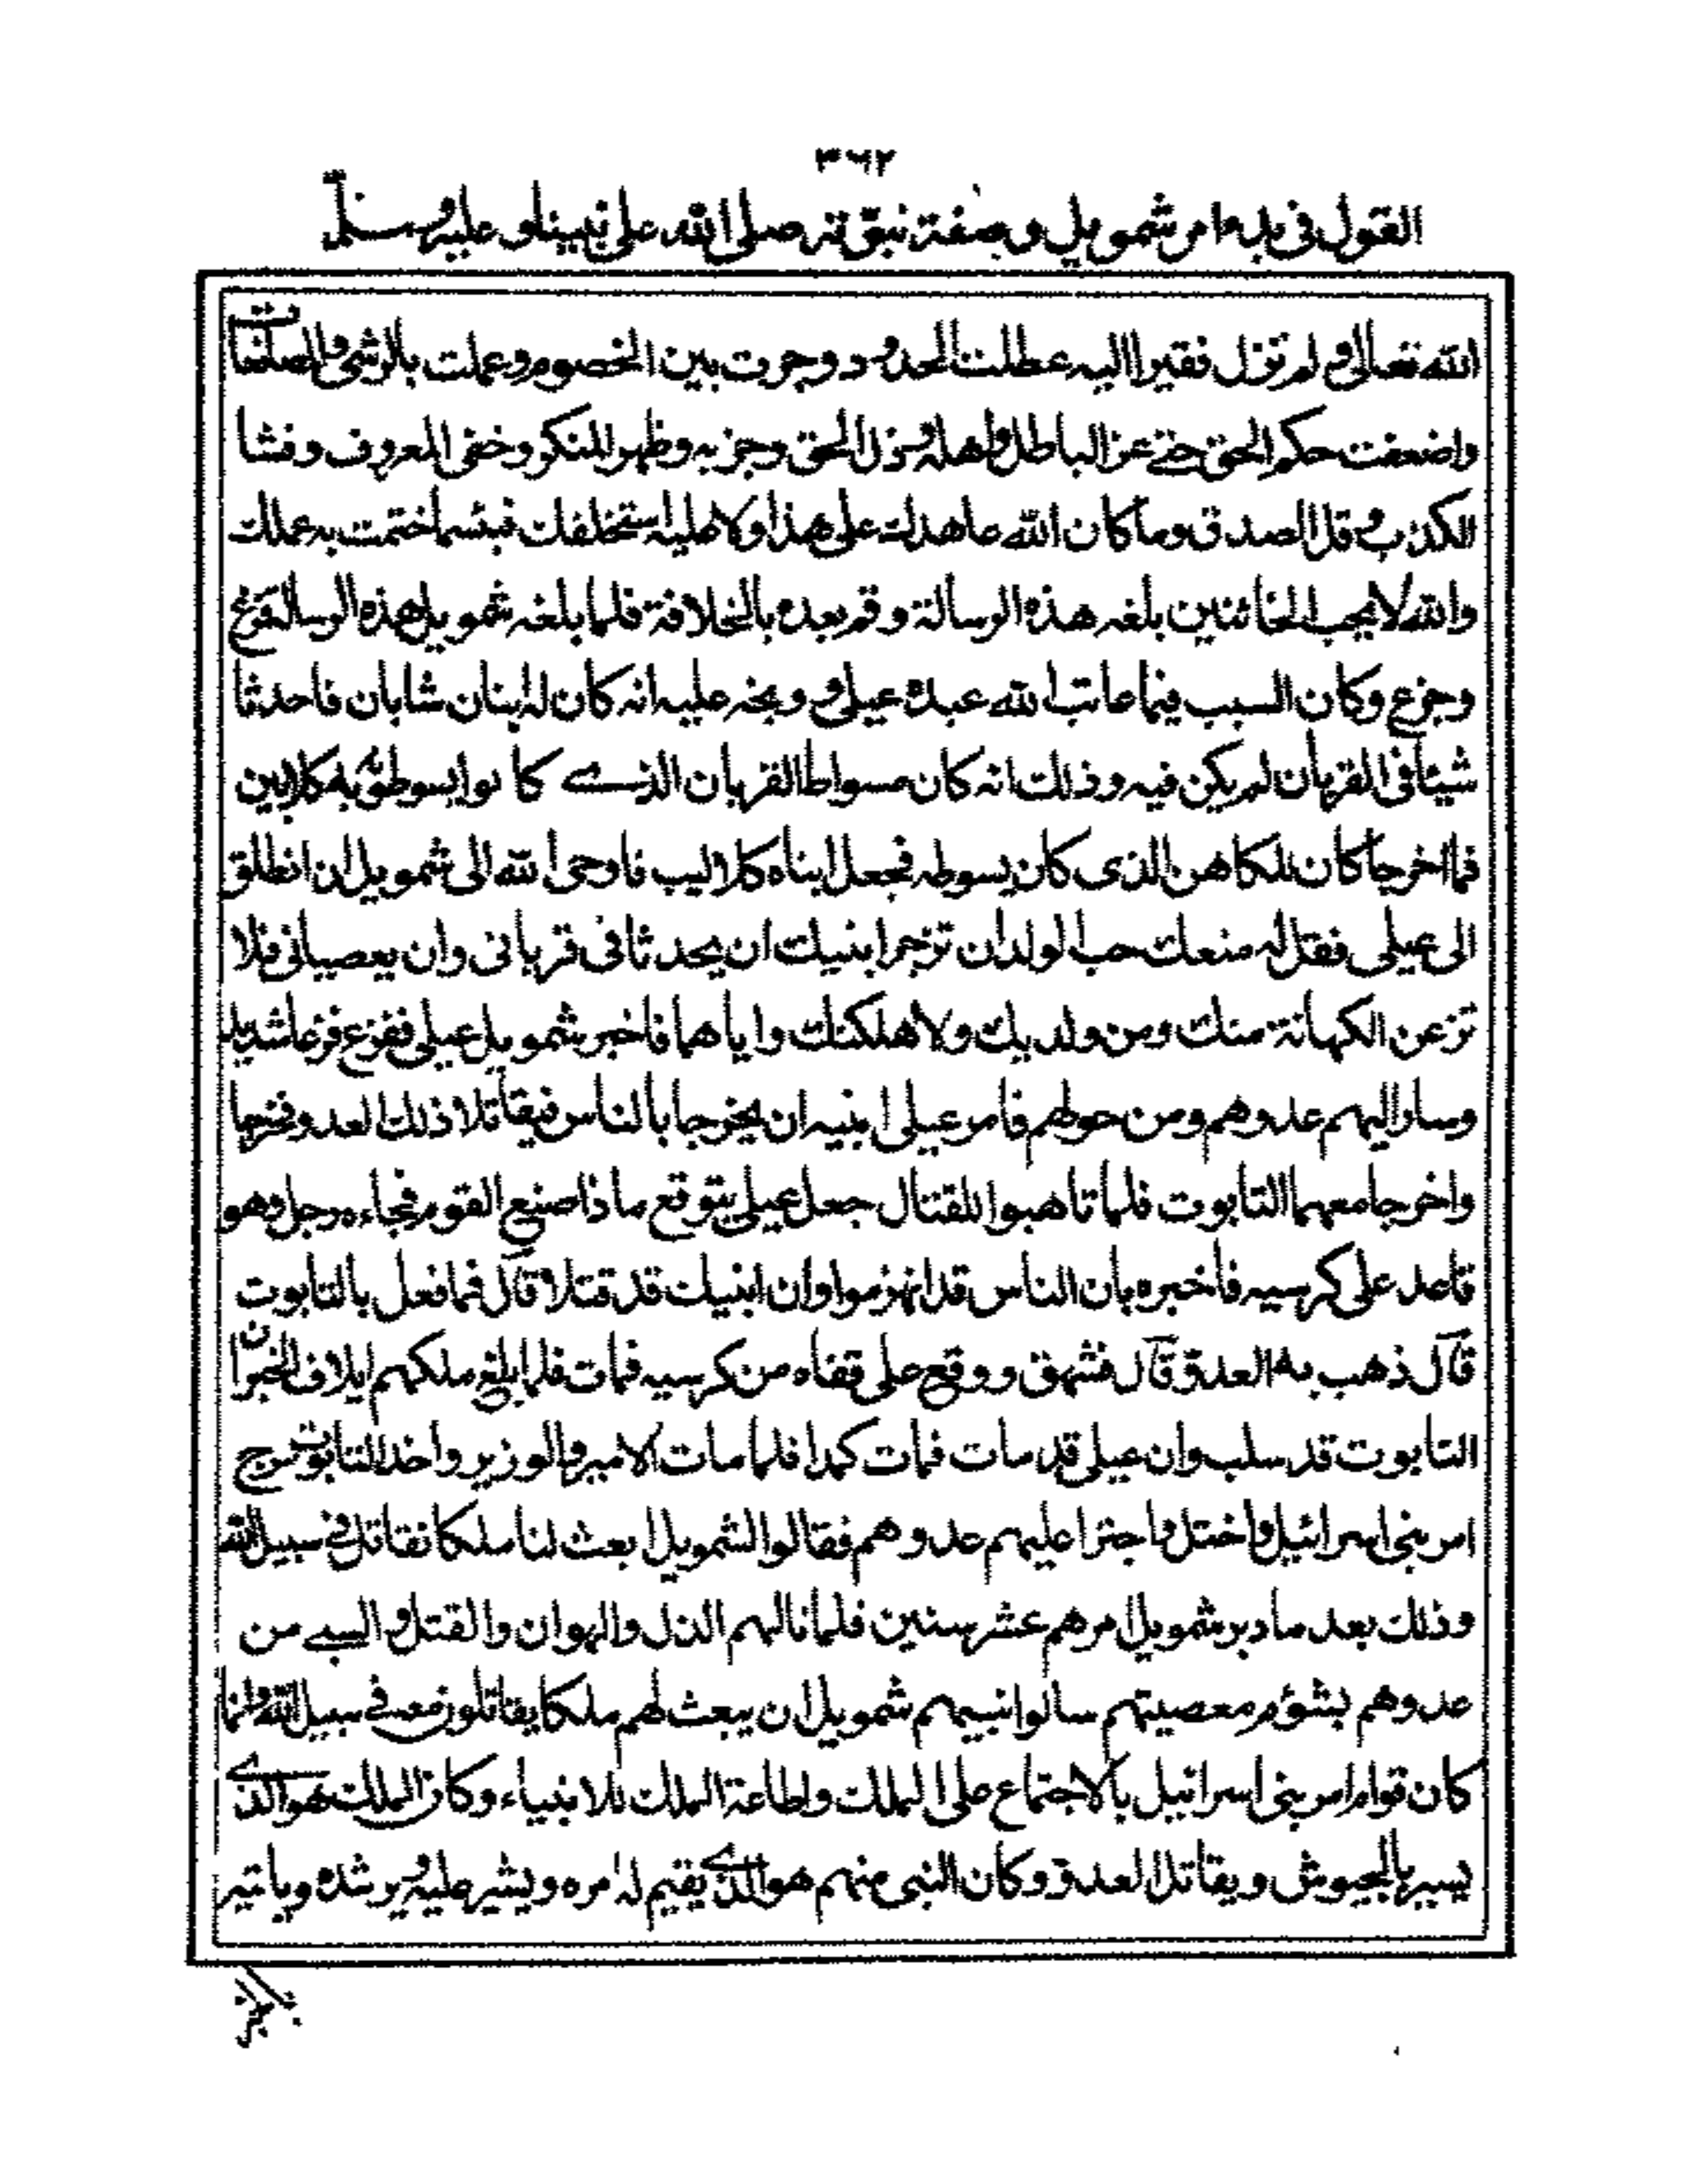 ٣٦٢
القول فى بدء امر شمويل وصفة نبوّته صلى الله على نبينا وعليه وسلم
الله تعالى ولم تزل فقيرا اليه عطلت الحدود وجرت بين الخصوم وعملت بالرشى والمصانعات
واضعفت حكم الحق حتى عز الباطل واهله وذل الحق وحزبه وظهر المنكر وخفى المعروف وفشا
الكذب وقل الصدق وما كان الله عاهدك على هذا ولا عليه استخلفك فبئسما ختمت به عملك
والله لا يحب الخائنين بلغه هذه الرسالة وقم بعده بالخلافة فلما بلغه شمويل هذه الرسالة فزع
وجزع وكان السبب فيما عاتب الله عبده عيلى ووبخه عليه انه كان له ابنان شابان فاحدثا
شيئا فى القربان لم يكن فيه وذلك انه كان مسواط القربان الذى كانوا يسوطونه به كلابين
فما اخرجا كان للكاهن الذى كان يسوطه فجعل ابناه كلاليب فاوحى الله الى شمويل ان انطلق
الى عيلى فقل له منعك حب الولد ان تزجر ابنيك ان يحدثا فى قربانى وان يعصيانى فلا
نزعن الكهانة منك ومن ولديك ولاهلكنك واياهما فاخبر شمويل عيلى ففزع فزعا شديدا
وسار اليهم عدوهم ومن حولهم فامر عيلى ابنيه ان يخرجا بالناس فيقاتلا ذلك العدو فخرجا
واخرجا معهما التابوت فلما تاهبوا للقتال جعل عيلى يتوقع ماذا صنع القوم فجاءه رجل وهو
قاعد على كرسيه فاخبره بان الناس قد انهزموا وان ابنيك قد قتلا قال فما فعل بالتابوت
قال ذهب به العدو قال فشهق ووقع على قفاه من كرسيه فمات فلما بلغ ملكهم ايلاف الخبر ان
التابوت قد سلب وان عيلى قد مات فمات كمدا فلما مات الامير والوزير واخذ التابوت مرج
امر بنى اسرائيل واختل واجترا عليهم عدوهم فقالوا لشمويل ابعث لنا ملكا نقاتل فى سبيل الله
وذلك بعد ما دبر شمويل امرهم عشر سنين فلما نالهم الذل والهوان والقتل والسبى من
عدوهم بشؤم معصيتهم سالوا نبيهم شمويل ان يبعث لهم ملكا يقاتلون معه فى سبيل الله وانما
كان قوام امر بنى اسرائيل بالاجتماع على الملك واطاعة الملك للانبياء وكان الملك هو الذى
يسير بالجيوش ويقاتل العدو وكان النبى منهم هو الذى يقيم له امره ويشير عليه ويرشده وياتيه
بالخبر